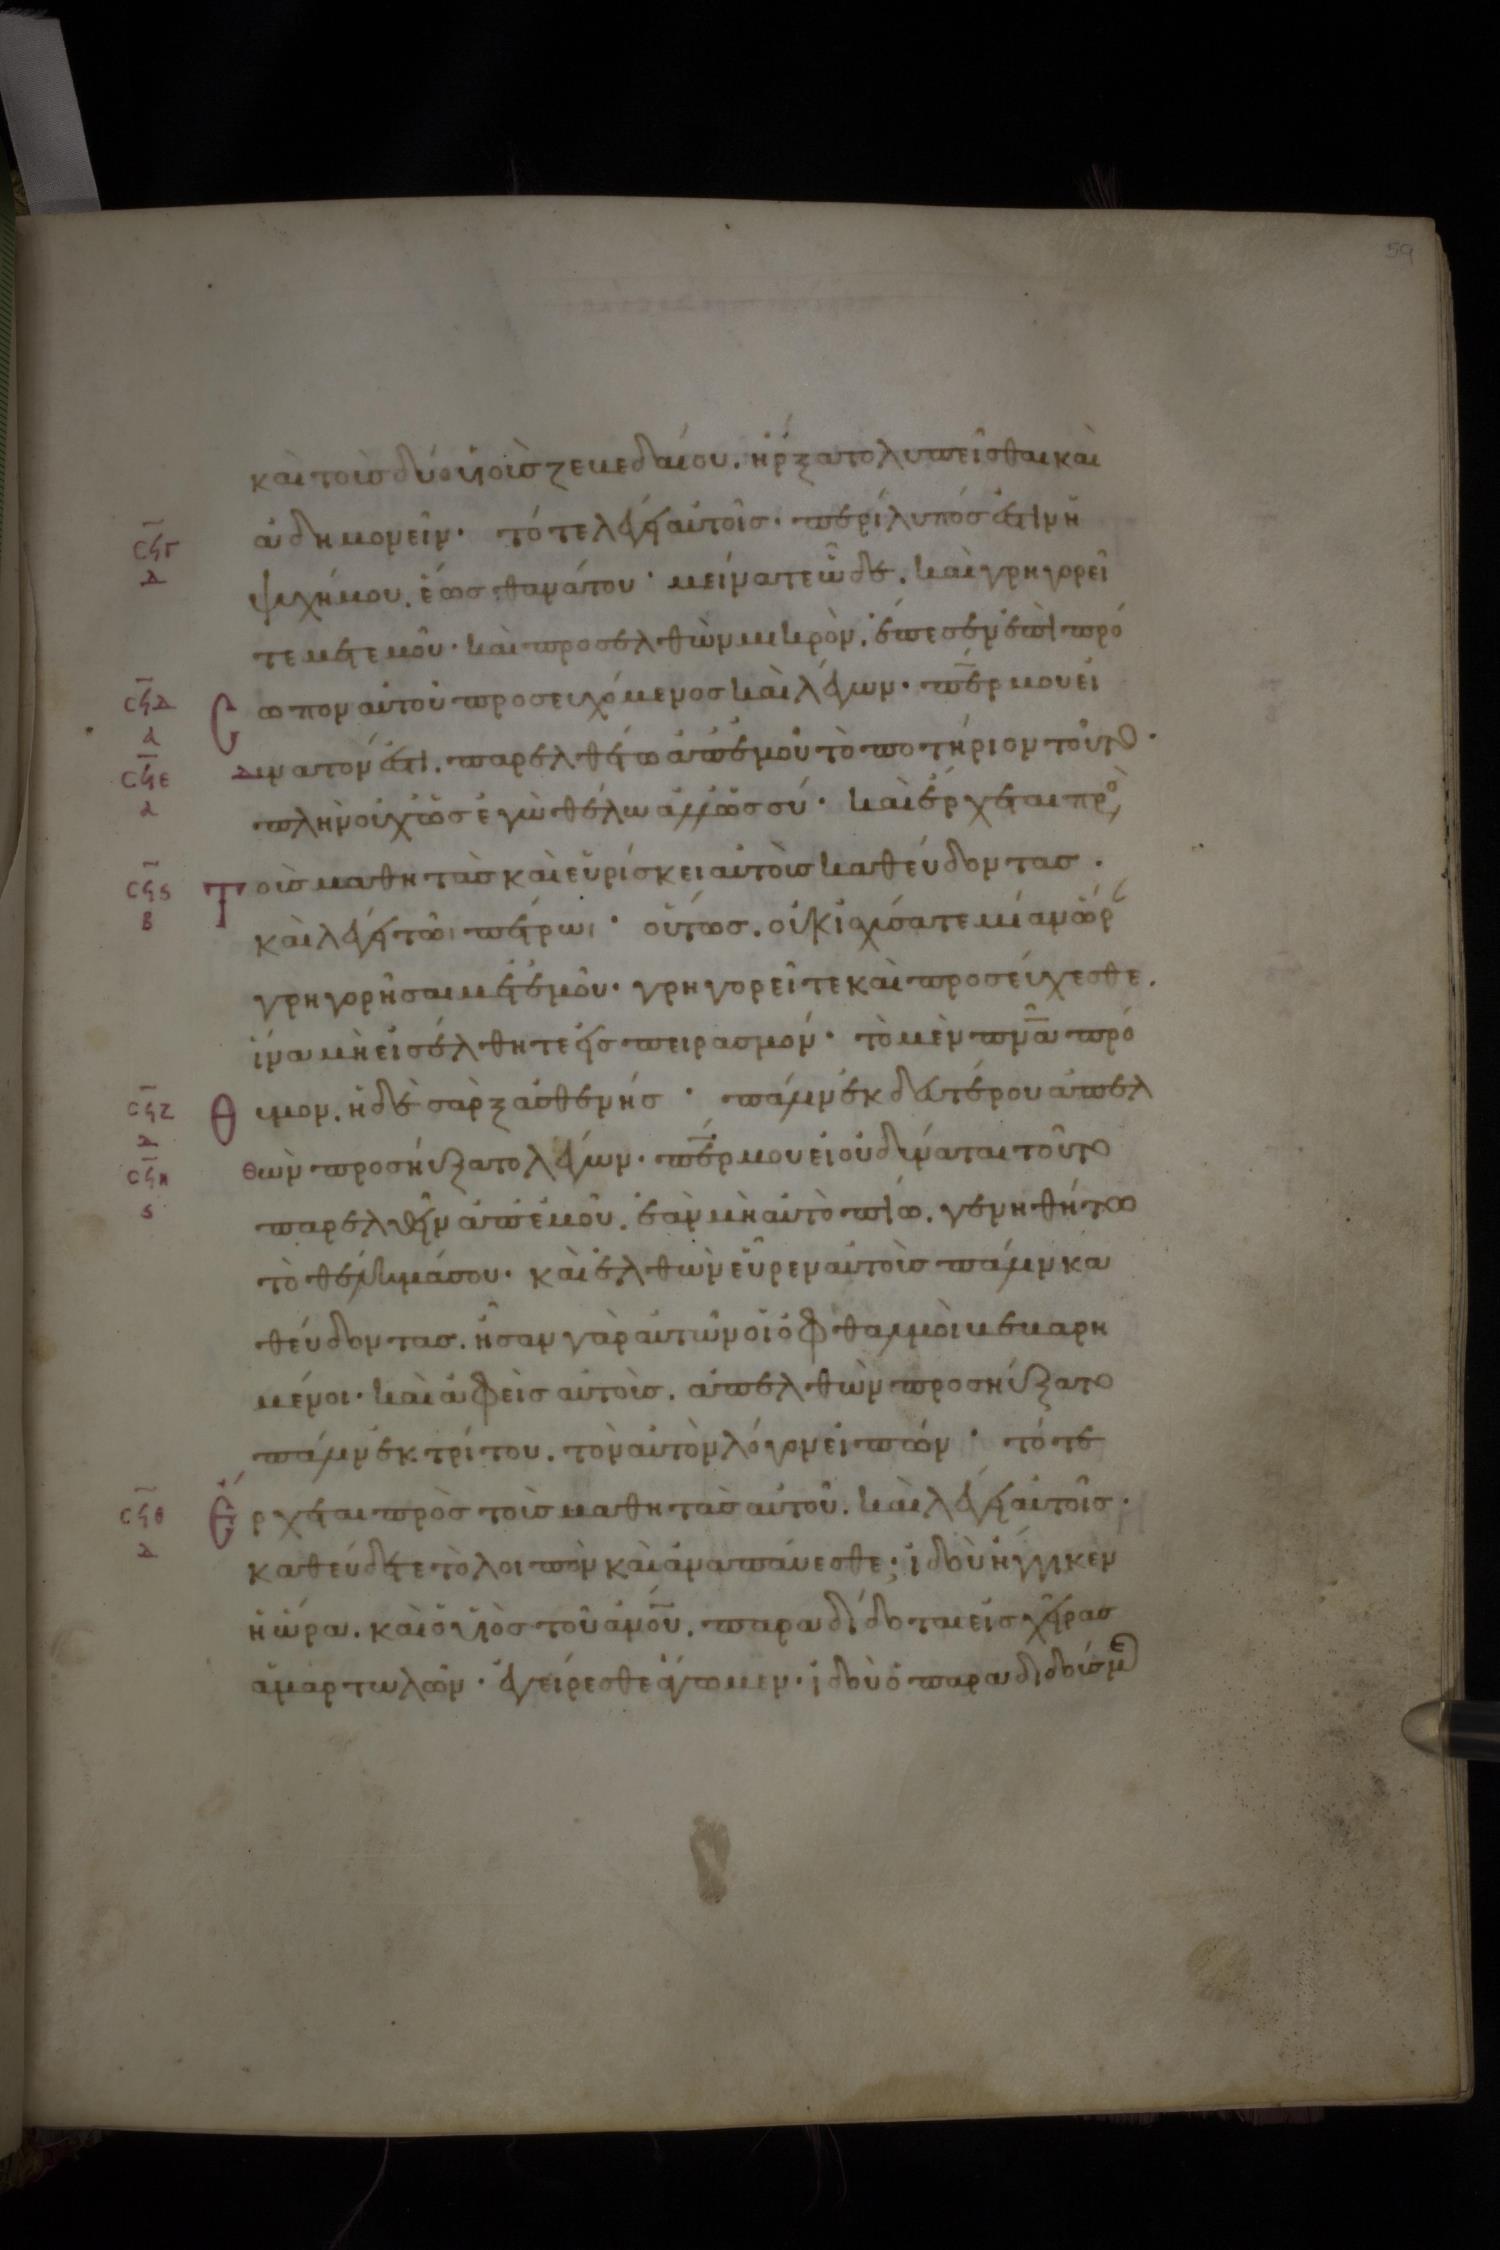 59
καὶ τοὺς δύο υἱοὺς ζεβεδαίου. ἤρξατο λυπεῖσθαι καὶ
ϹϞΓ Δ ἀδημονεῖν· τότε λέγει αὐτοῖς· περίλυπός ἐστιν ἡ
ψυχή μου. ἕως θανάτου· μείνατε ὧδε. καὶ γρηγορεῖ
τε μετ ἐμοῦ· καὶ προσελθὼν μικρὸν. ἔπεσεν ἐπὶ πρό
ϹϞΔ Α Cωπον αὐτοῦ προσευχόμενος καὶ λέγων· π̅ε̅ρ μου εἰ
ϹϞΕ Α Δυνατόν ἐστι. παρελθέτω ἀπ ἐμοῦ τὸ ποτήριον τοῦτο·
πλὴν οὐχ ὡς ἐγὼ θέλω ἀλλ ὡς σύ· καὶ ἔρχεται πρὸς
ϹϞϚ Β Τοὺς μαθητὰς καὶ εὑρίσκει αὐτοὺς καθεύδοντας.
καὶ λέγει τῶι πέτρωι· οὕτως. οὐκ ἰσχύσατε μίαν ὥρ
γρηγορῆσαι μετ ἐμοῦ· γρηγορεῖτε καὶ προσεύχεσθε.
ἵνα μὴ εἰσέλθητε εἰς πειρασμόν· τὸ μὲν π̅ν̅α̅ πρό
ϹϞΖ Δ Θυμον. ἡ δὲ σὰρξ ἀσθενής· πάλιν ἐκ δευτέρου ἀπελ
ϹϞΗ Ϛ Θὼν προσηύξατο λέγων· π̅ε̅ρ μου εἰ οὐ δύναται τοῦτο
παρελθεῖν ἀπ ἐμοῦ. ἐὰν μὴ αὐτὸ πίω. γενηθήτω
τὸ θέλημά σου· καὶ ἐλθὼν εὗρεν αὐτοὺς πάλιν κα
θεύδοντας. ἦσαν γὰρ αὐτῶν οἱ ὀφθαλμοὶ βεβαρη
μένοι· καὶ ἀφεὶς αὐτοὺς. ἀπελθὼν προσηύξατο
πάλιν ἐκ τρίτου. τὸν αὐτὸν λόγον εἰπών· τότε
ϹϞΘ Δ Ἔρχεται πρὸς τοὺς μαθητὰς αὐτοῦ. καὶ λέγει αὐτοῖς·
καθεύδετε τὸ λοιπὸν καὶ ἀναπαύεσθε; ἰδοὺ ἤγγικεν
ἡ ὥρα. καὶ ὁ υἱὸς τοῦ α̅ν̅ο̅υ̅. παραδίδοται εἰς χεῖρας
ἁμαρτωλῶν· ἐγείρεσθε ἄγωμεν· ἰδοὺ ὁ παραδιδούς με